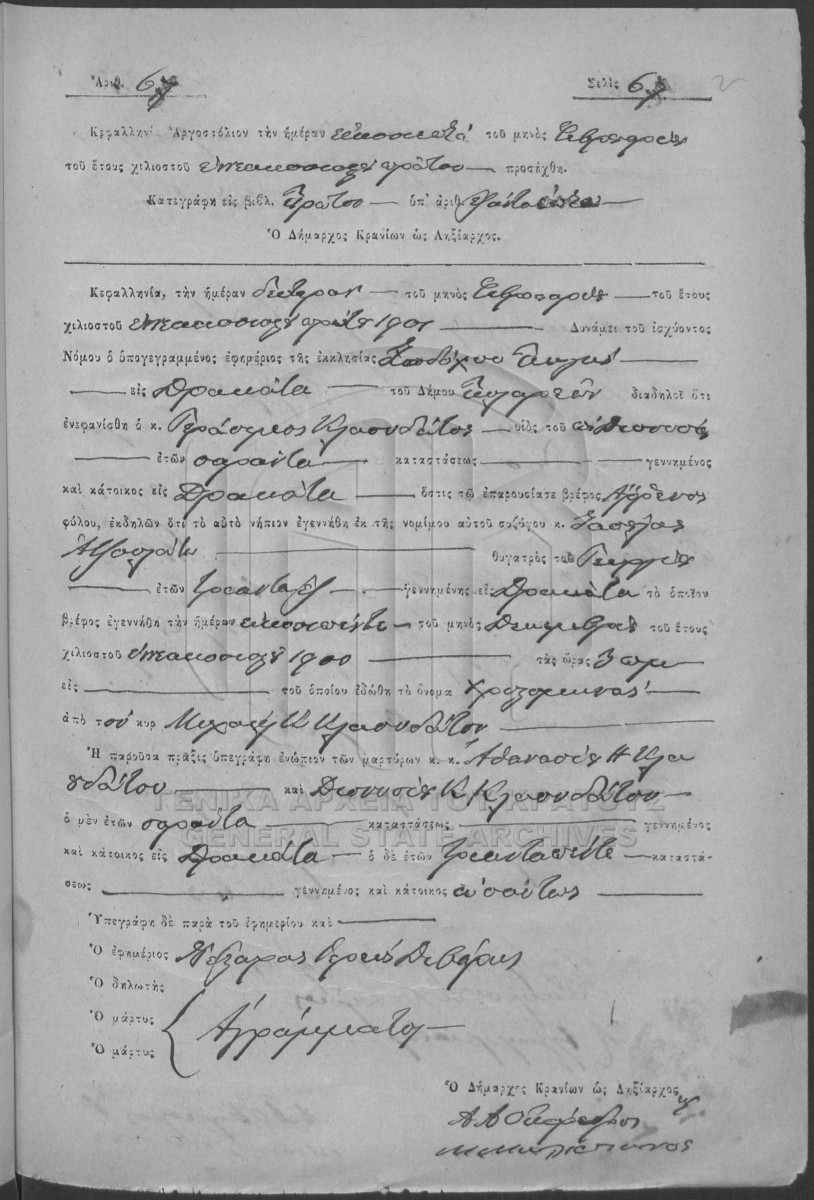 Ἀριθ. 67
Σελὶς 67
2
Κεφαλληνία Ἀργοστόλιον τὴν ἡμέραν τοῦ μηνὸς Φεβρουαρίου
τοῦ ἔτους χιλιοστοῦ ἐννεακοσιοστοῦ πρώτου προσήχθη.
Κατεγράφη εἰς βιβλ. Πρῶτον ὑπ' ἀριθ.
Ὁ Δήμαρχος Κρανίων ὡς Ληξίαρχος.
Κεφαλληνία, τὴν ἡμέραν δευτέραν τοῦ μηνὸς Φεβρουαρίου τοῦ ἔτους
χιλιοστοῦ ἐννεακοσιοστοῦ πρώτου 1901 Δυνάμει τοῦ ἰσχύοντος
Νόμου ὁ ὑπογεγραμμένος ἐφημέριος τῆς ἐκκλησίας
εἰς Δρακάτα τοῦ Δήμου διαδηλοῖ ὅτι
ἐνεφανίσθη ὁ κ. Γεράσιμος Κλαουδάτος υἱὸς τοῦ
ἐτῶν σαράντα καταστάσεως γεννημένος
καὶ κάτοικος εἰς Δρακάτα ὅστις τῷ ἐπαρουσίασε βρέφος ἄρρενος
φύλου, ἐκδηλῶν ὅτι τὸ αὐτὸ νήπιον ἐγεννήθη ἐκ τῆς νομίμου αὐτοῦ συζύγου κ.
θυγατρὸς τοῦ Γεωργίου
ἐτῶν τριάντα ἓξ γεννημένης εἰς Δρακάτα τὸ ὁποῖον
βρέφος ἐγεννήθη τὴν ἡμέραν εἰκοσιπέντε τοῦ μηνὸς Δεκεμβρίου τοῦ ἔτους
χιλιοστοῦ ἐννεακοσιοστοῦ 1900 τὰς ὥρας 3 πμ
εἰς τοῦ ὁποίου ἐδώθη τὸ ὄνομα
ἀπὸ τοῦ κυρ Μιχαὴλ Κ Κλαουδάτον
Ἡ παροῦσα πρᾶξις ὑπεγράφη ἐνώπιον τῶν μαρτύρων κ. κ. Ἀθανασίου Η Κλα
ουδάτου καὶ Διονυσίου Κ Κλαουδάτου
ΓΕΝΙΚΑ ΑΡΧΕΙΑ ΤΟΥ ΚΡΑΤΟΥΣ
ὁ μὲν ἐτῶν σαράντα καταστάσεως γεννημένος
GENERAL STATE ARCHIVES
καὶ κάτοικος εἰς Δρακάτα ὁ δὲ ἐτῶν τριανταπέντε καταστά-
σεως γεννημένος καὶ κάτοικος ὡσαύτως
Ὑπεγράφη δὲ παρὰ τοῦ ἐφημερίου καὶ
Ὁ ἐφημέριος
Ὁ δηλωτὴς
Ὁ μάρτυς Ἀγράμματοι
Ὁ μάρτυς
Ὁ Δήμαρχος Κρανίων ὡς Ληξίαρχος